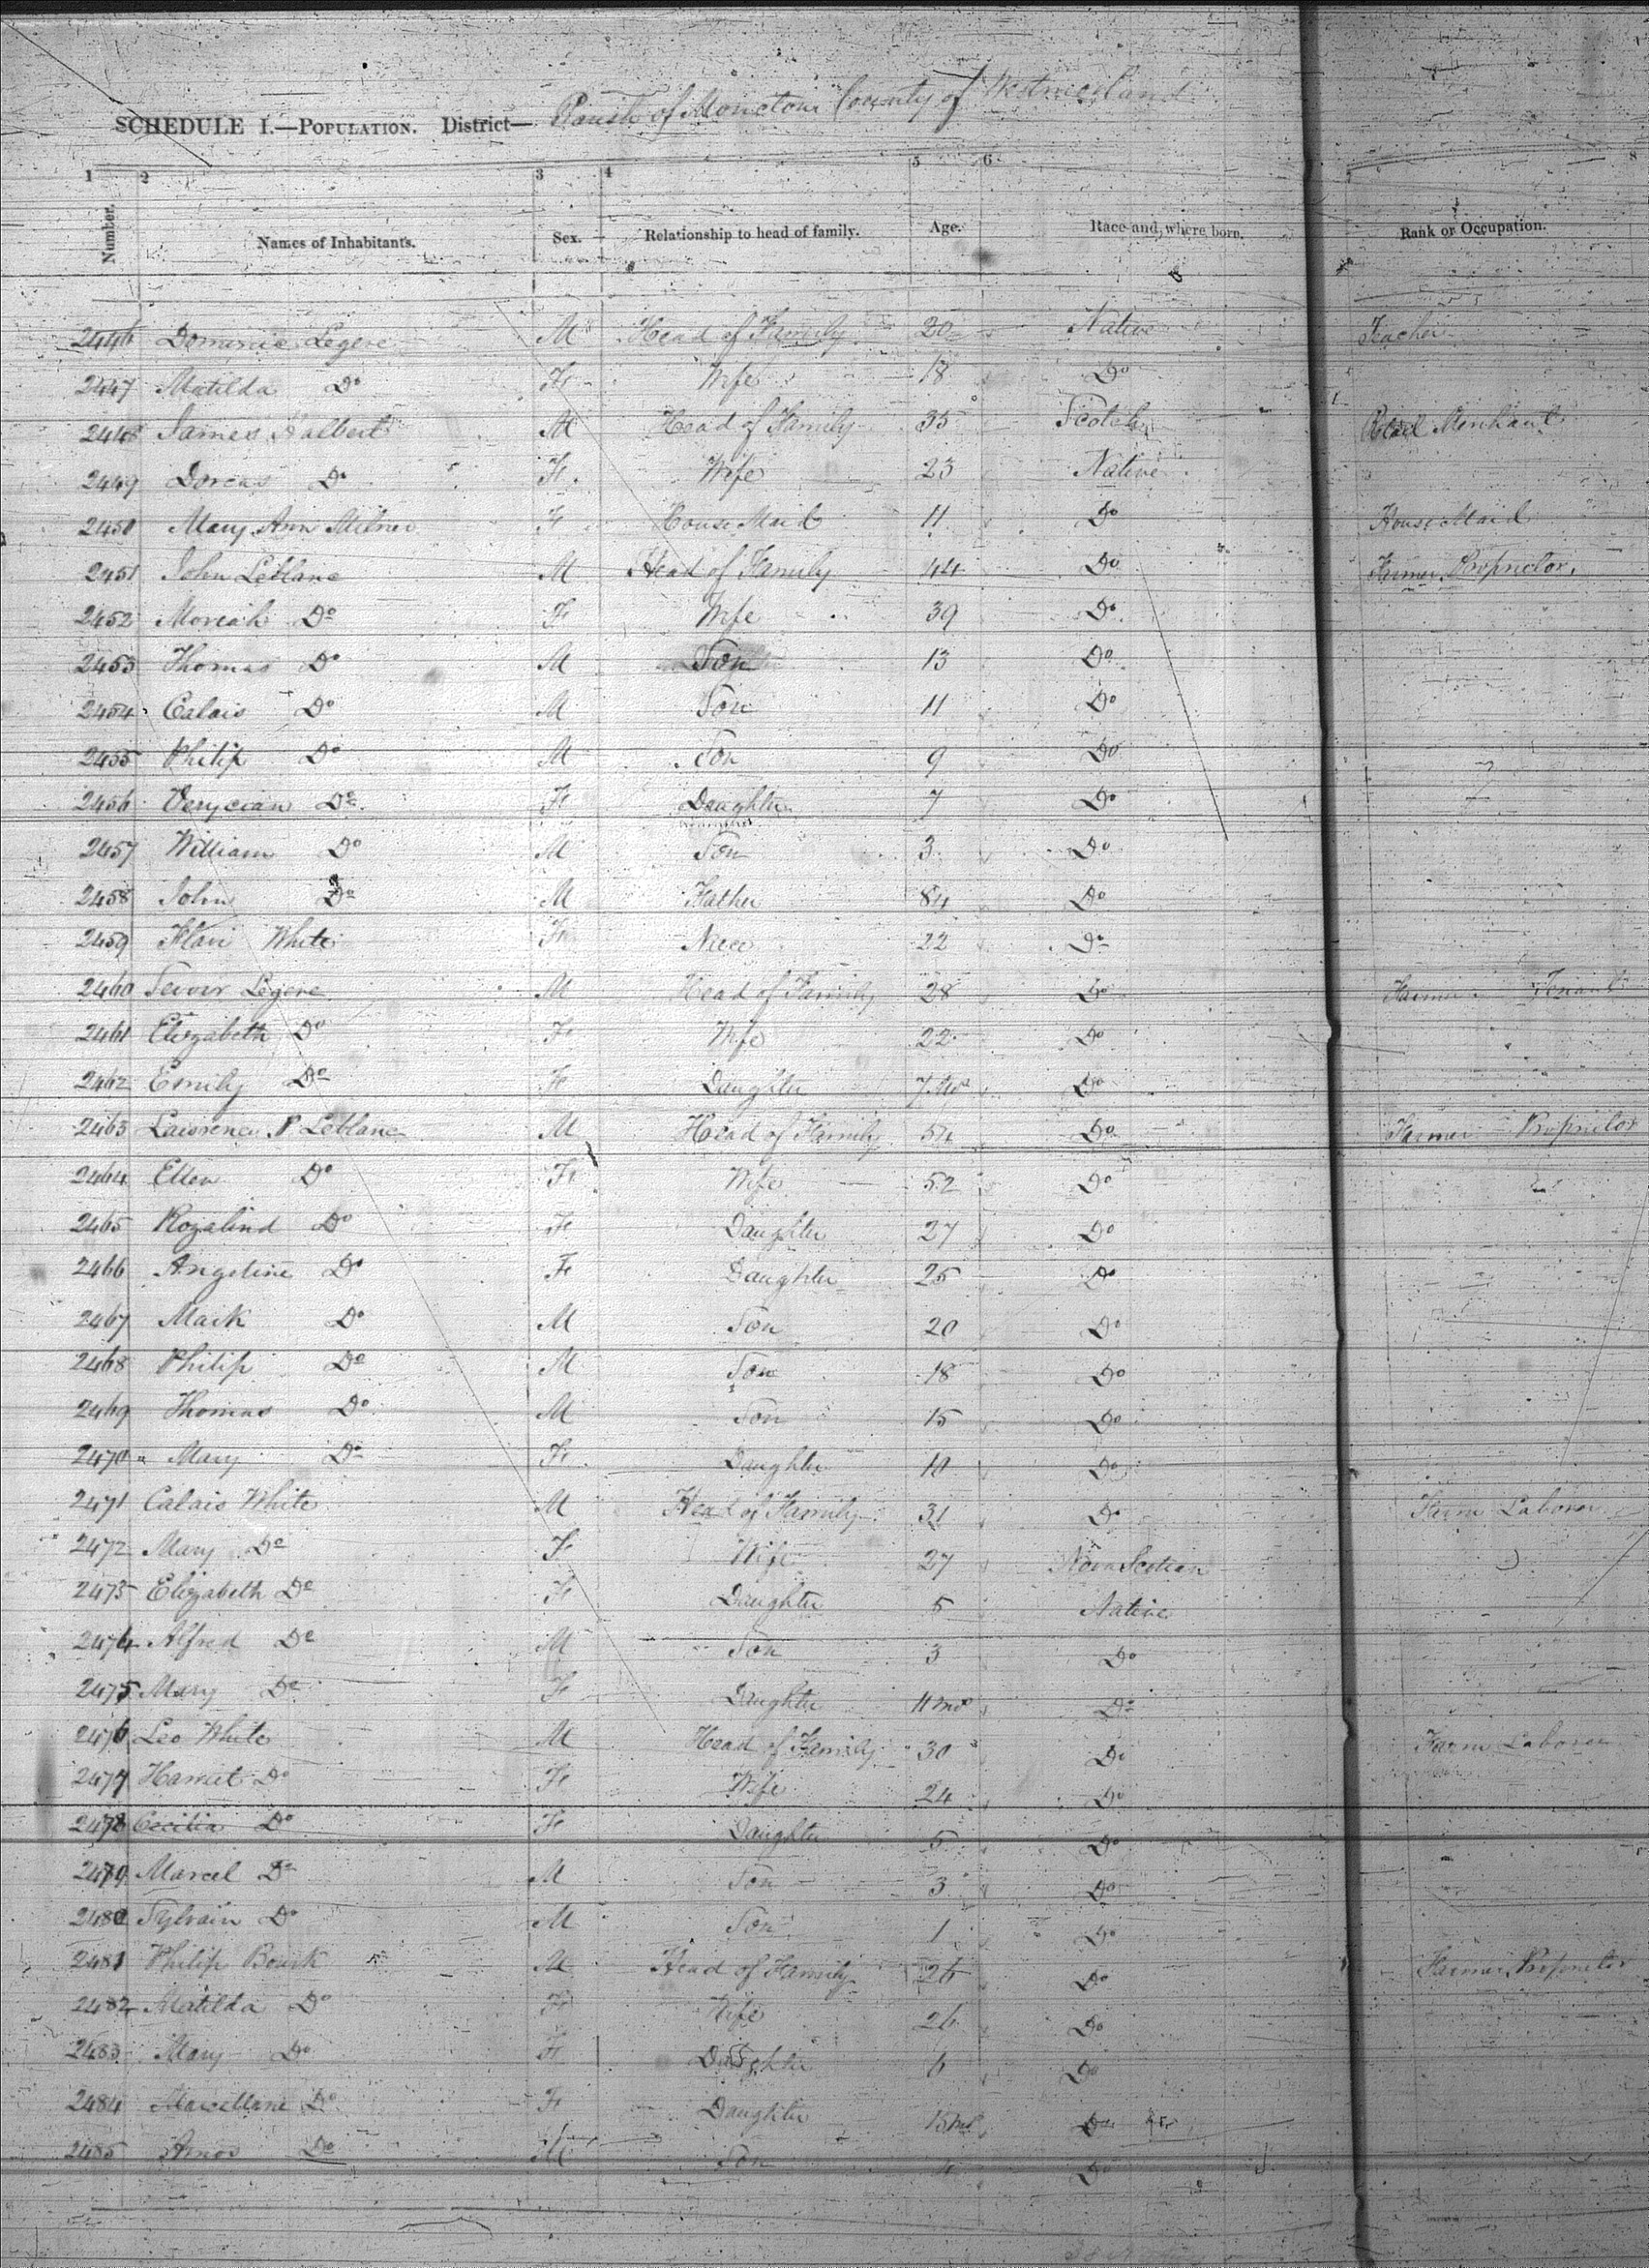 SCHEDULE I.—POPULATION. District— Parish of Moncton County of Westmorland
1 2 3 4 5 6 8
Number. Names of Inhabitants. Sex. Relationship to head of family. Age. Race and where born. Rank or Occupation.
2446 Dominic Legere M Head of Family 20 Native Teacher
2447 Matilda Do F Wife 18 Do
2448 James M Head of Family 35 Scotch Retail Merchant
2449 Dorcas Do F Wife 23 Native
2450 Mary Ann Milner F House Maid 11 Do House Maid
2451 John Leblanc M Head of Family 44 Do Farmer Proprietor
2452 Moriah Do F Wife 39 Do
2453 Thomas Do M Son 13 Do
2454 Calais Do M Son 11 Do
2455 Philip Do M Son 9 Do
2456 Do F Daughter 7 Do
2457 William Do M Son 3 Do
2458 John Do M Father 84 Do
2459 Flavi White F Niece 22 Do
2460 Legere M Head of Family 28 Do Farmer Tenant
2461 Elizabeth Do F Wife 22 Do
2462 Emily Do F Daughter 7 Mo Do
2463 Lawrence P Leblanc M Head of Family 54 Do Farmer Proprietor
2464 Ellen Do F Wife 52 Do
2465 Rozalind Do F Daughter 27 Do
2466 Angeline Do F Daughter 25 Do
2467 Mark Do M Son 20 Do
2468 Philip Do M Son 18 Do
2469 Thomas Do M Son 15 Do
2470 Mary Do F Daughter 10 Do
2471 Calais White M Head of Family 31 Do Farm Laborer
2472 Mary Do F Wife 27 Nova Scotian
2473 Elizabeth Do F Daughter 5 Native
2474 Alfred Do M Son 3 Do
2475 Mary Do F Daughter 11 mo Do
2476 Leo White M Head of Family 30 Do Farm Laborer
2477 Harriet Do F Wife 24 Do
2478 Cecilia Do F Daughter 5 Do
2479 Marcel Do M Son 3 Do
2480 Sylvain Do M Son 1 Do
2481 Philip Bourk M Head of Family 26 Do Farmer Proprietor
2482 Matilda Do F Wife 26 Do
2483 Mary Do F Daughter 6 Do
2484 Marcellane Do F Daughter Do
2485 Amos Do M Son Do